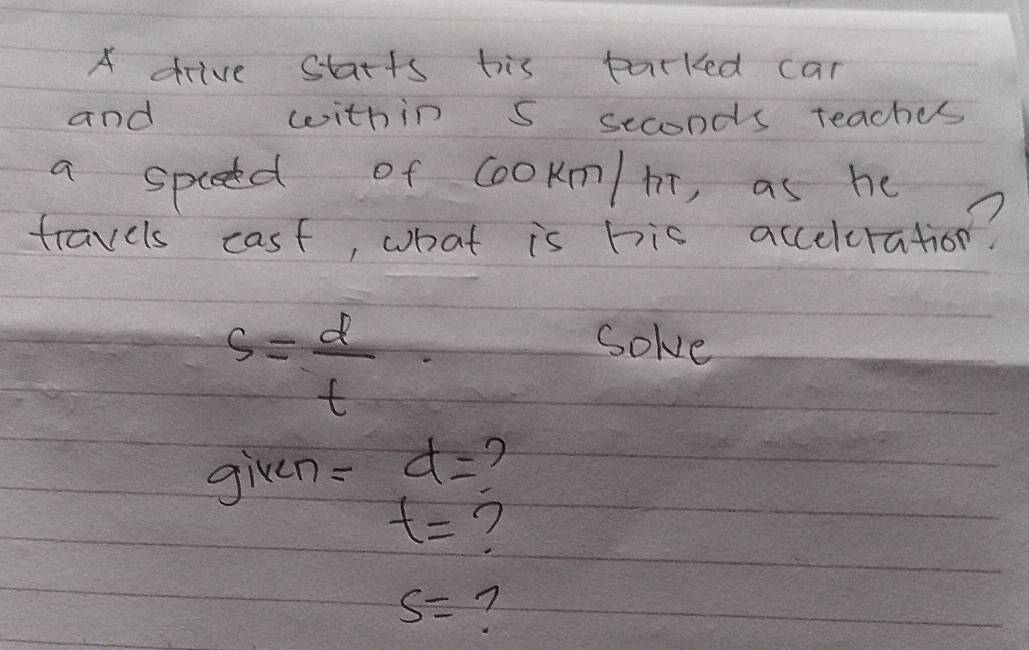 A drive starts his parked car
and within 5 seconds reaches
a speed of 60 km/hr, as he
travels east, what is his acceleration?
s = d/t . Solve
given = d = ?
t = ?
s = ?